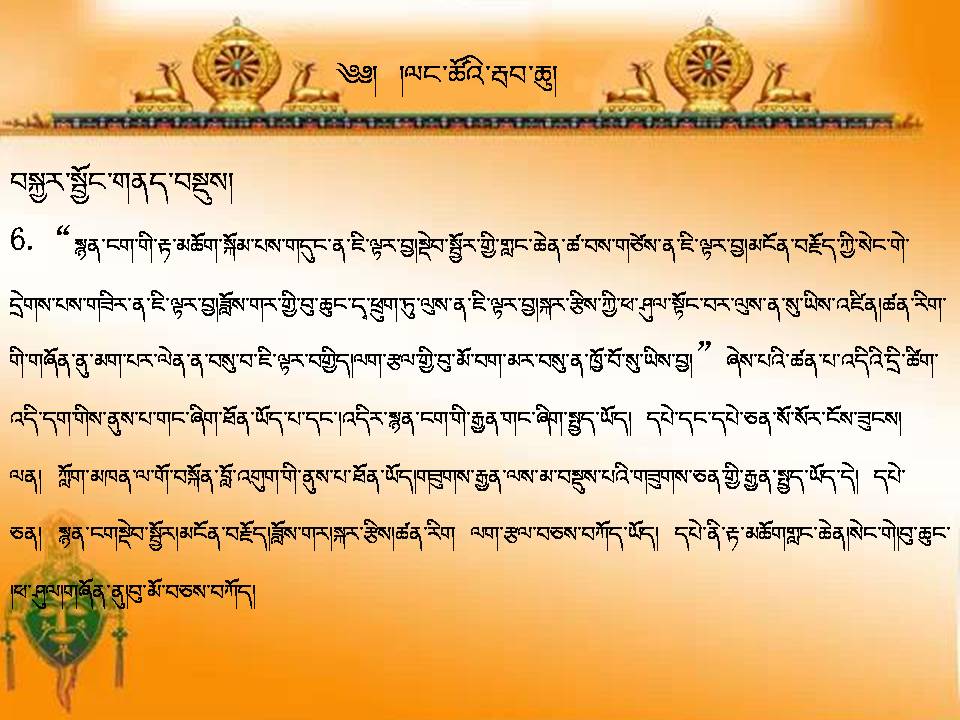 ༄༅། །ལང་ཚོའི་རྦབ་ཆུ།
བསྐྱར་སྦྱོང་གནད་བསྡུས།
6. “སྙན་ངག་གི་རྟ་མཆོག་སྐོམ་པས་གདུང་ན་ཇི་ལྟར་བྱ།སྡེབ་སྦྱོར་གྱི་གླང་ཆེན་ཚ་བས་གཙེས་ན་ཇི་ལྟར་བྱ།མངོན་བརྗོད་ཀྱི་སེང་གེ་
དྲེགས་པས་གཟིར་ན་ཇི་ལྟར་བྱ།ཟློས་གར་གྱི་བུ་ཆུང་དྭ་ཕྲུག་ཏུ་ལུས་ན་ཇི་ལྟར་བྱ།སྐར་རྩིས་ཀྱི་ཕ་ཤུལ་སྟོང་བར་ལུས་ན་སུ་ཡིས་འཛིན།ཚན་རིག་
གི་གཞོན་ནུ་མག་པར་ལེན་ན་བསུ་བ་ཇི་ལྟར་བགྱིད།ལག་རྩལ་གྱི་བུ་མོ་བག་མར་བསུ་ན་ཁྱོ་བོ་སུ་ཡིས་བྱ།” ཞེས་པའི་ཚན་པ་འདིའི་དྲི་ཚིག་
འདི་དག་གིས་ནུས་པ་གང་ཞིག་ཐོན་ཡོད་པ་དང་།འདིར་སྙན་ངག་གི་རྒྱན་གང་ཞིག་སྤྱད་ཡོད། དཔེ་དང་དཔེ་ཅན་སོ་སོར་ངོས་ཟུངས།
ལན། ཀློག་མཁན་ལ་གོ་བསྐོན་བློ་འགུག་གི་ནུས་པ་ཐོན་ཡོད།གཟུགས་རྒྱན་ལས་མ་བསྡུས་པའི་གཟུགས་ཅན་གྱི་རྒྱན་སྤྱད་ཡོད་དེ། དཔེ་
ཅན། སྙན་ངག།སྡེབ་སྦྱོར།མངོན་བརྗོད།ཟློས་གར།སྐར་རྩིས།ཚན་རིག ལག་རྩལ་བཅས་བཀོད་ཡོད། དཔེ་ནི་རྟ་མཆོག།གླང་ཆེན།སེང་གེ།བུ་ཆུང་
།ཕ་ཤུལ།གཞོན་ནུ།བུ་མོ་བཅས་བཀོད།